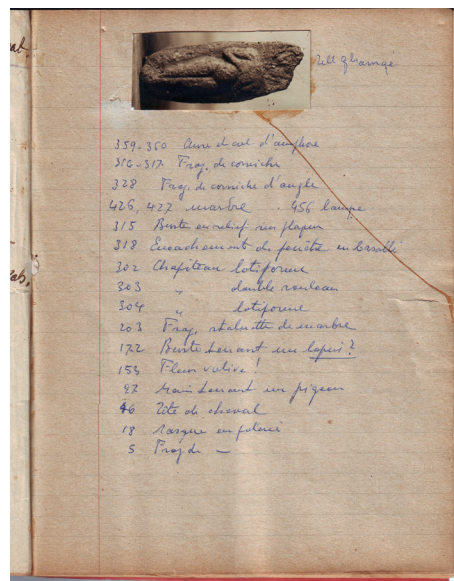 Tell ghamqé
359-360 Anse et col d'amphore
316-317 Frag. de corniche
328 Frag. de corniche d'angle
426, 427 marbre 456 lampe
315 Buste en relief sur plaque
318 Encadrement de fenêtre en basalte
302 Chapiteau lotiforme
303 " double rouleau
304 " lotiforme
203 Frag. statuette de marbre
172 Buste tenant un lapin?
153 Fleur votive!
97 Main tenant un pigeon
46 Tête de cheval
18 Masque en poterie
5 Frag de —